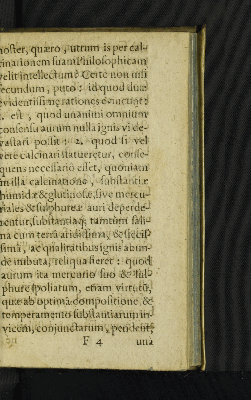 noster, quæro, utrum is per cal-
cinationem suam Philosophicam
velit intellectum? Certè non nisi
secundum, puto: id quod duæ
evidentissimæ rationes evincunt:
1. est, quod unanimi omnium
consensu aurum nulla ignis vi de-
vastari possit: 2. quod si vel
verè calcinari statueretur, conse-
quens necessariò esset, quoniam
in illa calcinatione, substantiæ
humidæ & glutinosæ, sive mercu-
riales & sulphureæ auri deperde-
rentur, substantiaq; tantùm sali-
na cum terra aridissima, & siccis-
sima, ac qualitatibus ignis abun-
dè imbuta, reliqua fieret: quod
aurum ita mercurio suo & sul-
phure spoliatum, etiam virtute,
quæ ab optima compositione, &
temperamento substantiarum in-
vicem, conjunctarum, pendent,
F 4 una